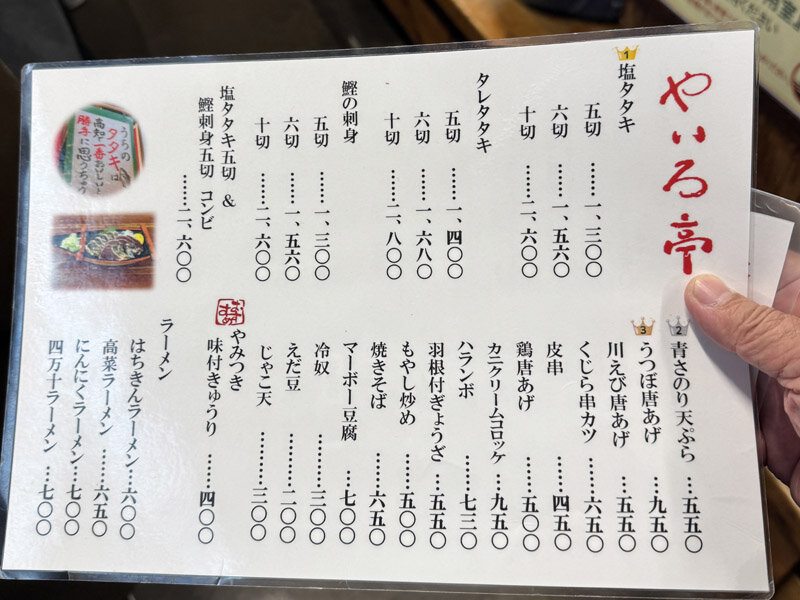 やいろ亭
1
塩タタキ
五切 ……一、三〇〇
六切 ……一、五六〇
十切 ……二、六〇〇
タレタタキ
五切 ……一、四〇〇
六切 ……一、六八〇
十切 ……二、八〇〇
鰹の刺身
五切 ……一、三〇〇
六切 ……一、五六〇
十切 ……二、六〇〇
塩タタキ五切 &
鰹刺身五切 コンビ
……二、六〇〇
うちの
タタキは
高知で一番おいしいと
勝手に思うちょり
2
青さのり天ぷら …五五〇
3
うつぼ唐あげ …九五〇
川えび唐あげ …五五〇
くじら串カツ …六五〇
皮串 ……四五〇
鶏唐あげ ……五〇〇
カニクリームコロッケ …九五〇
ハランボ ……七三〇
羽根付ぎょうざ …五五〇
もやし炒め ……五〇〇
焼きそば ……六五〇
マーボー豆腐 …七〇〇
冷奴 ………三〇〇
えだ豆 ………二〇〇
じゃこ天 ………三〇〇
おすすめ
やみつき
味付きゅうり ……四〇〇
ラーメン
はちきんラーメン …六〇〇
高菜ラーメン ……六五〇
にんにくラーメン …七〇〇
四万十ラーメン …七〇〇